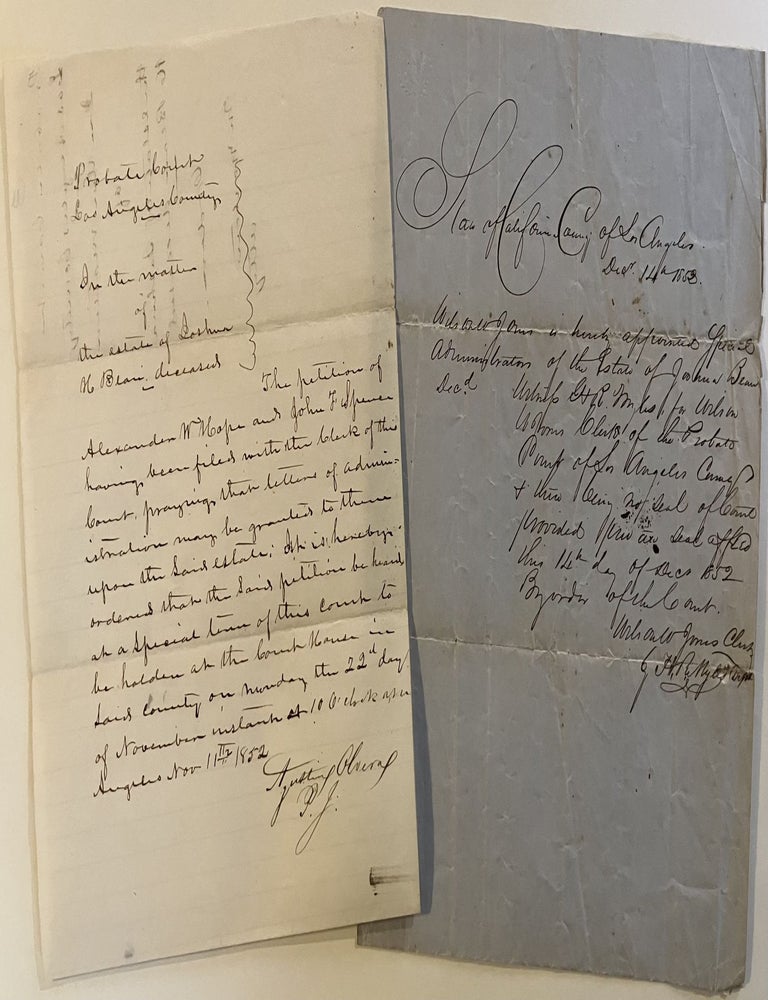 Probate Court
Los Angeles County
In the matter
of
the estate of Joshua
H Bean, deceased
The petition of
Alexander W Hope and John F Spence
having been filed with the Clerk of this
Court, praying that letters of admin-
istration may be granted to them
upon the said estate; It is hereby
ordered that the said petition be heard
at a special term of this Court to
be holden at the Court House in
said County on Monday the 22d day
of November instant at 10 O'clock a.m
Angeles Nov 11th 1852
Agustin Olvera
P. J.
State of California County of Los Angeles.
Decr. 14th 1852.
Wilson W Jones is hereby appointed Special
Administrator of the Estate of Joshua Bean
Decd.
Witness for Wilson
W Jones Clerk of the Probate
Court of Los Angeles County
& there being no seal of Court
provided seal affixed
this 14th day of Decr 1852
By order of the Court.
Wilson W Jones Clerk
by